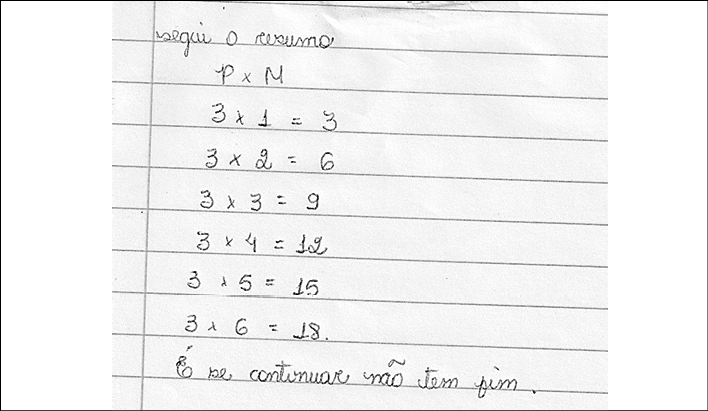 segui o resumo
P x M
3 x 1 = 3
3 x 2 = 6
3 x 3 = 9
3 x 4 = 12
3 x 5 = 15
3 x 6 = 18.
É se continuar não tem fim.